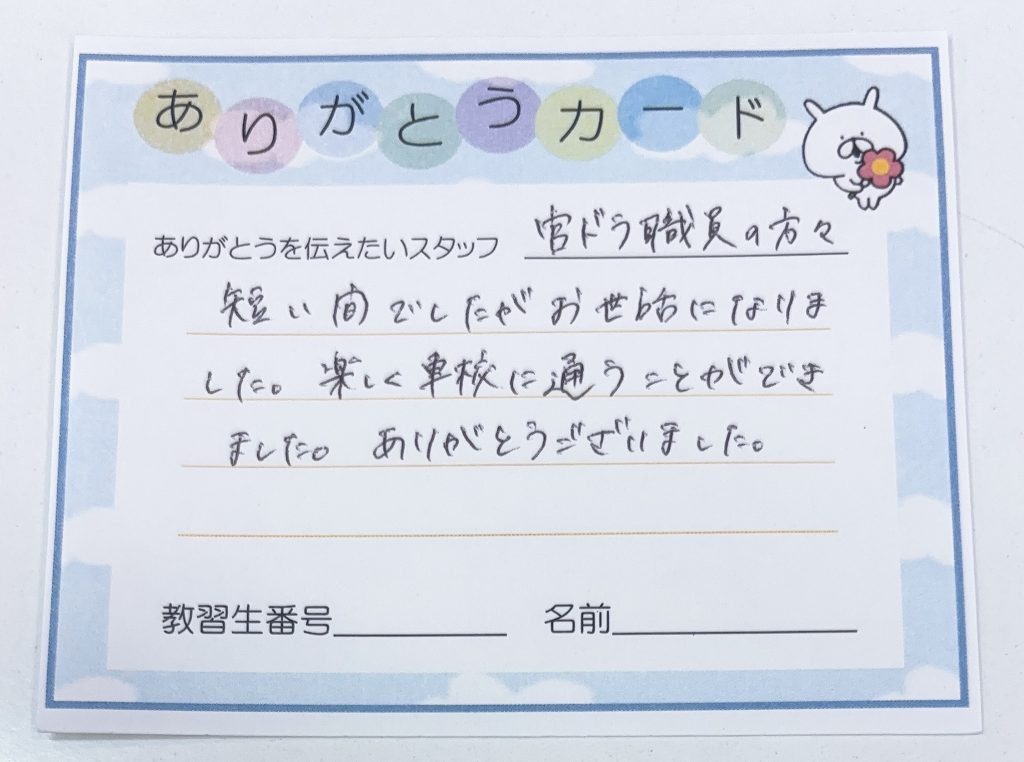 ありがとうカード
ありがとうを伝えたいスタッフ 宮ドラ職員の方々
短い間でしたがお世話になりま
した。楽しく車校に通うことができ
ました。ありがとうございました。
教習生番号 名前